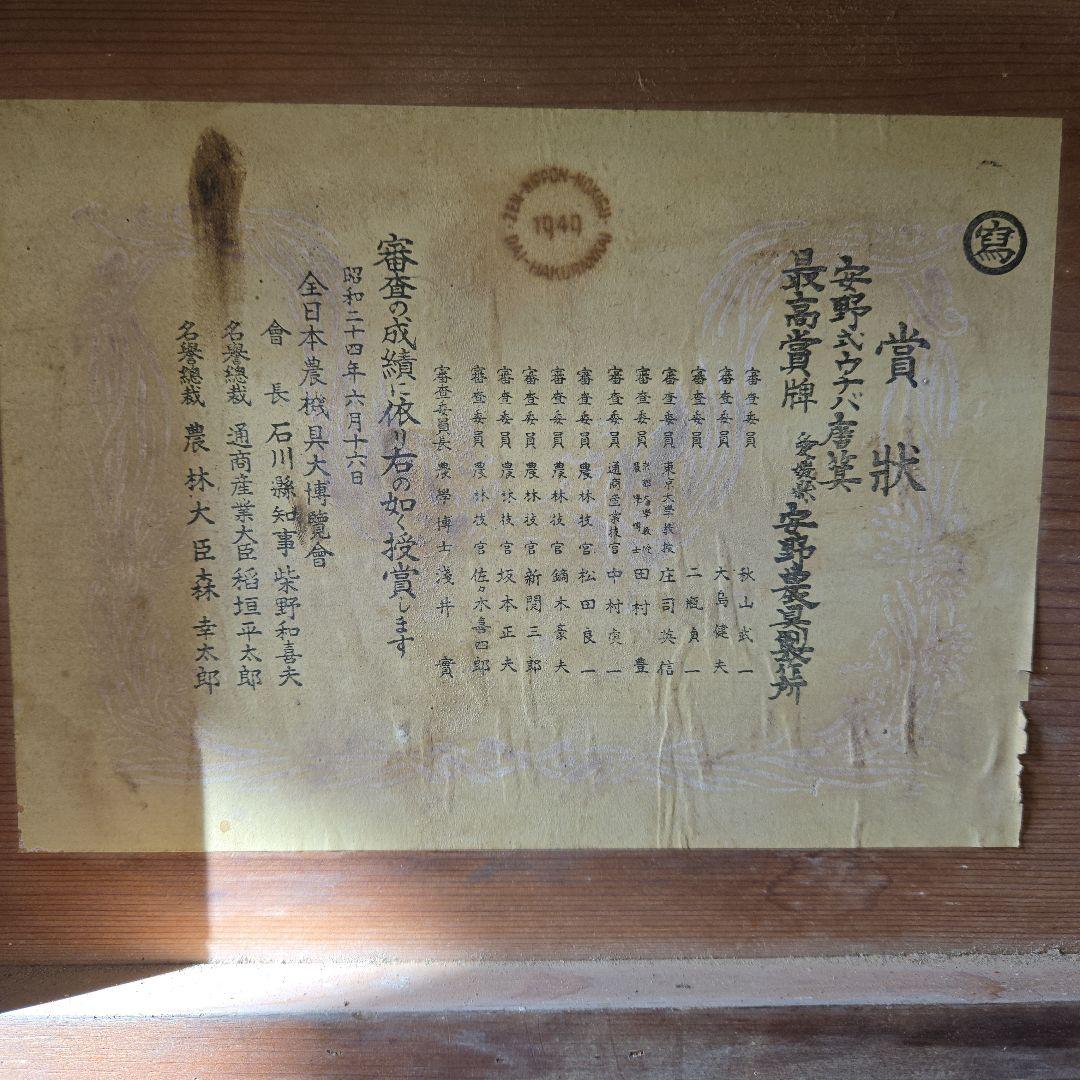 寫
賞狀
安野式ウチバ唐箕
最高賞牌 愛媛縣 安野農具製作所
審査委員 秋山武一
審査委員 大島健夫
審査委員 二瓶貞一
審査委員 東京大學教授 庄司英信
審査委員 田村豊
審査委員 通商産業技官 中村実一
審査委員 農林技官 松田良一
審査委員 農林技官 鏑木豪夫
審査委員 農林技官 新関三郎
審査委員 農林技官 坂本正夫
審査委員 農林技官 佐々木喜四郎
審査委員長 農學博士 淺井實
審査の成績に依り右の如く授賞します
昭和二十四年六月十六日
全日本農機具大博覽會
會長 石川縣知事 柴野和喜夫
名譽總裁 通商産業大臣 稻垣平太郎
名譽總裁 農林大臣 森幸太郎
ZEN-NIPPON-NOKIGU-
1949
DAI-HAKURANKAI